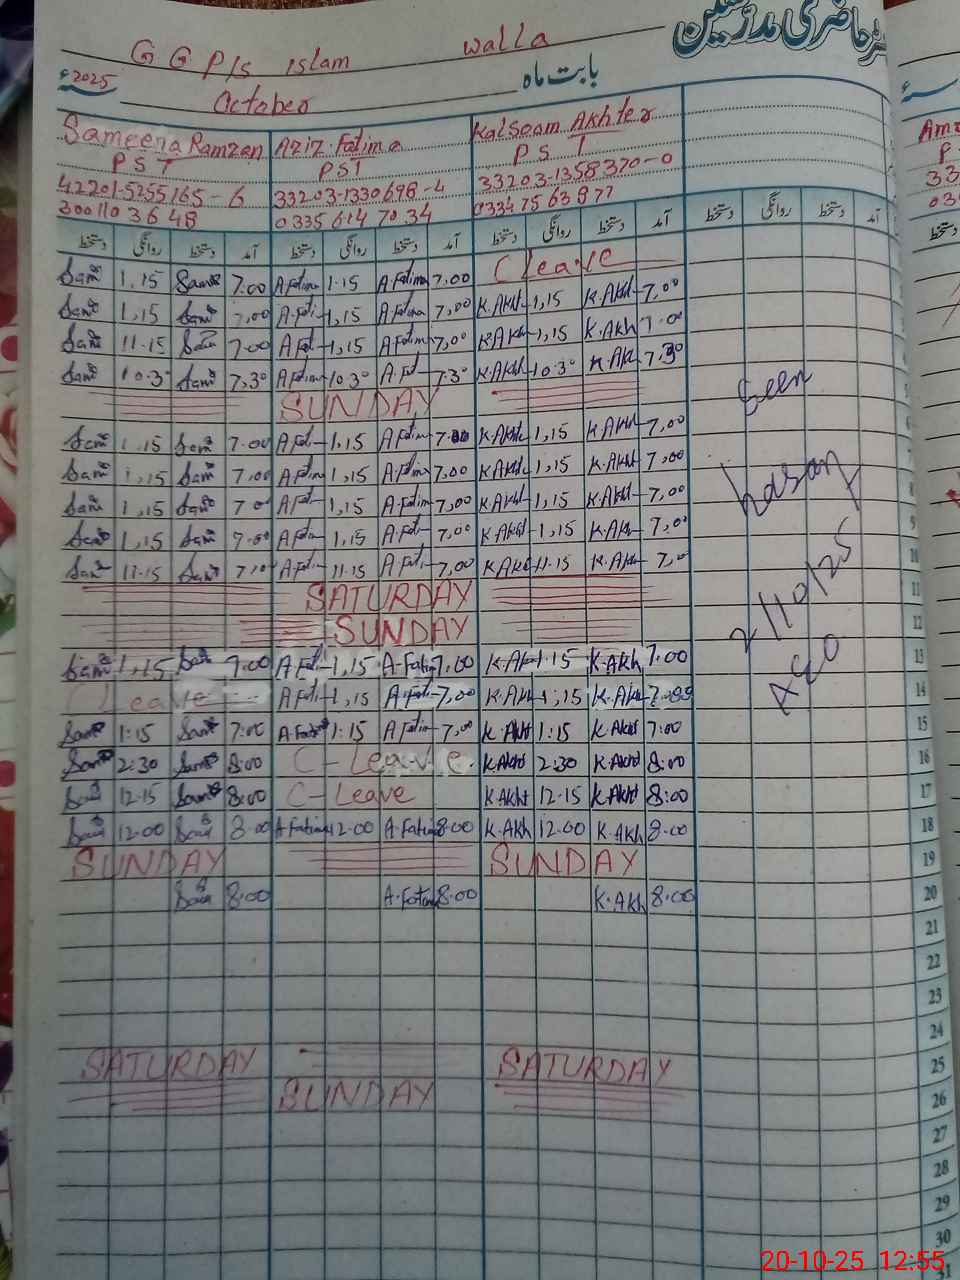 حاضری مدرسین
G G P/s islam walla
2025ء بابت ماہ October
Sameena Ramzan Aziz Fatima Kalsoom Akhter
P S T PST P S T
42201-5255165-6 33203-1330698-4 33203-1358370-0
300110 3648 0335 614 70 34 0334 75 63 977
دستخط روانگی دستخط آمد دستخط روانگی دستخط آمد دستخط روانگی دستخط آمد دستخط روانگی دستخط آمد
Sam 1.15 Sam 7.00 A Fatima 1.15 A.Fatima 7.00 C Leave
Sam 1,15 Sam 7,00 A.Fati 1,15 A.Fatima 7,00 K.AKht 1,15 K.AKht 7,00
Sam 11.15 Sam 7.00 A Fat 1,15 A Fatim 7,00 K.AKh 1,15 K.AKh 7.00
Sam 10.30 Sam 7,30 A Fatima 10.30 A.Fat 7.30 K.AKht 10.30 K.AK 7.30
SUNDAY 5
Seen
Sam 1.15 Sam 7.00 A Fat 1,15 A Fatim 7.00 K.AKht 1,15 K.AKht 7,00 6
Sam 1,15 Sam 7,00 A Fatima 1,15 A.Fatima 7,00 K.AKht 1,15 K.AKht 7,00 7
Sam 1,15 Sam 7 00 A Fat 1,15 A Fatim 7,00 K.AKht 1,15 K.AKht 7,00 8
Hasan
Sam 1,15 Sam 7.00 A Fatima 1,15 A.Fat 7,00 K.AKht 1,15 K.AKh 7,00 9
Sam 11.15 Sam 7.00 A-Fati 11.15 A Fati 7,00 K.AKht 11.15 K.AKh 7,00 10
SATURDAY 11
2/10/25
SUNDAY 12
AEO
Sam 1,15 Sam 7.00 A.Fati 1,15 A-Fatim 7.00 K.AKh 1.15 K.AKh 7.00 13
C Leave A Fati 1,15 A.Fati 7,00 K.AKh 1,15 K.AKh 14
Sam 1:15 Sam 7:00 A.Fat 1:15 A Fati 7,00 K.AKht 1:15 K.AKht 7:00 15
Sam 2:30 Sam 8:00 C- Leave K.AKht 2:30 K.AKht 8:00 16
Sam 12.15 Sam 8:00 C- Leave K.AKht 12.15 K.AKht 8:00 17
Sam 12.00 Sam 8.00 A Fatima 12.00 A.Fatima 8.00 K.AKh 12.00 K.AKh 8.00 18
SUNDAY SUNDAY 19
Sam 8.00 A.Fatim 8.00 K.AKh 8.00 20
21
22
23
24
SATURDAY SATURDAY 25
SUNDAY 26
27
28
29
30
31
20-10-25 12:55